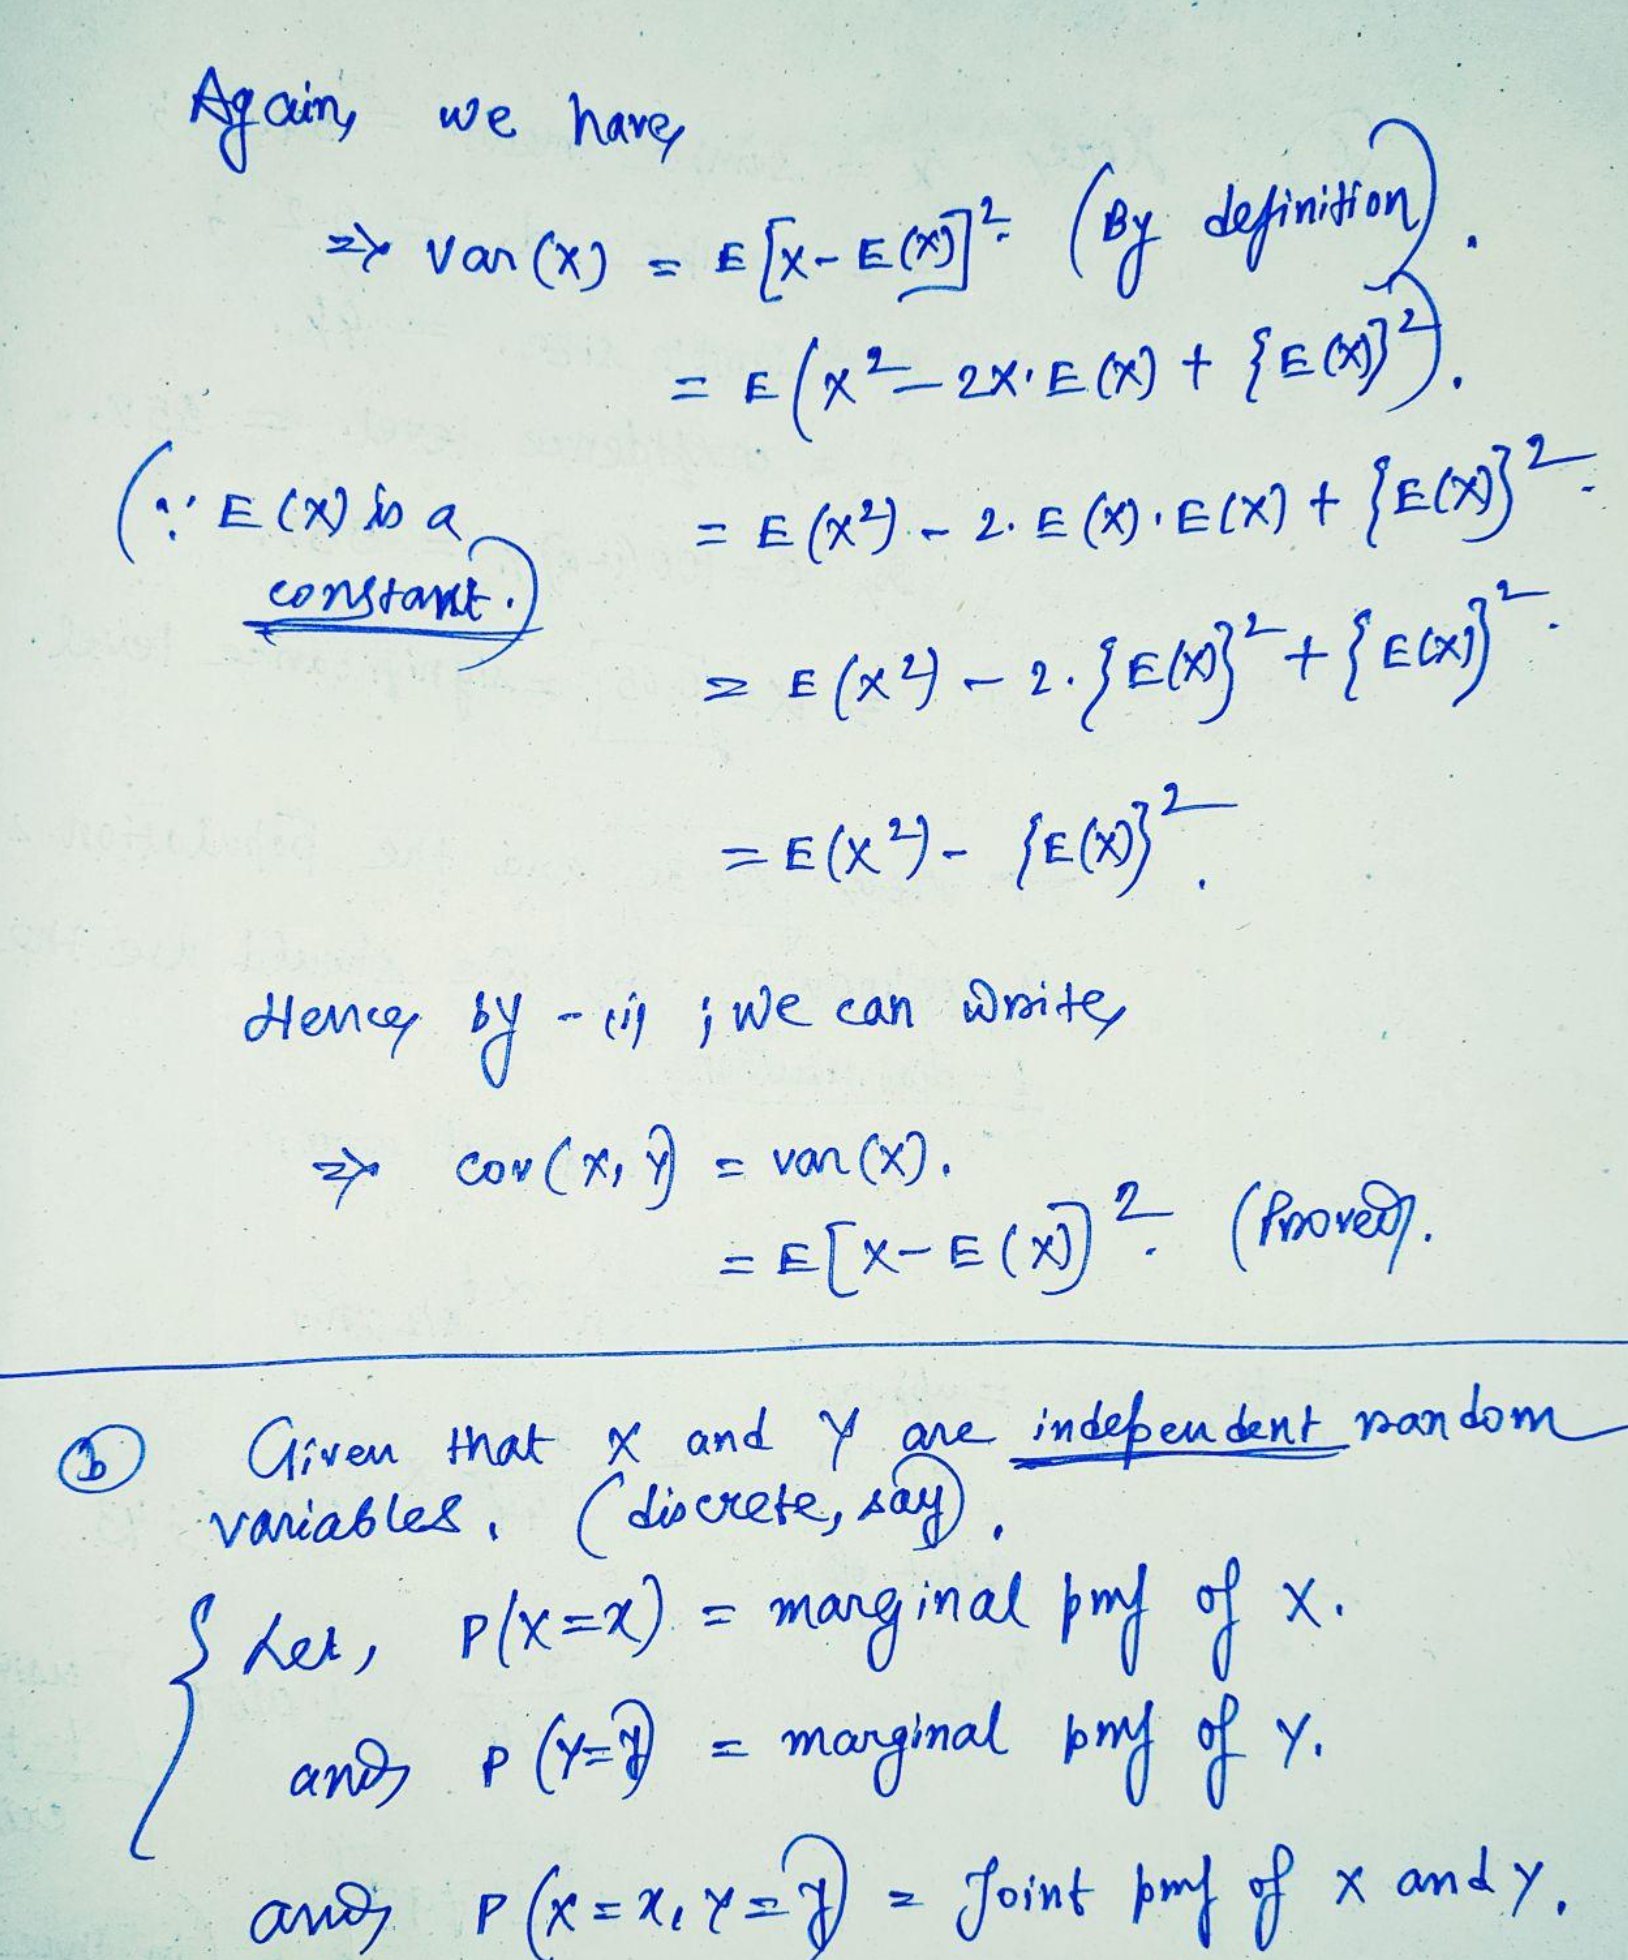 Again, we have,
⇒ Var(X) = E[X-E(X)]². (By definition).
= E(X²-2X·E(X) + {E(X)}²).
(∵ E(X) is a = E(X²) - 2. E(X)·E(X) + {E(X)}².
constant.)
= E(X²) - 2.{E(X)}² + {E(X)}².
= E(X²) - {E(X)}².
Hence, by -(i) ; we can write,
⇒ cov(X, Y) = var(X).
= E[X-E(X)]². (Proved).
(b) Given that X and Y are independent random
variables. (discrete, say).
{ Let, P(X=x) = marginal pmf of X.
and, P(Y=y) = marginal pmf of Y.
and, P(X=x, Y=y) = Joint pmf of X and Y.